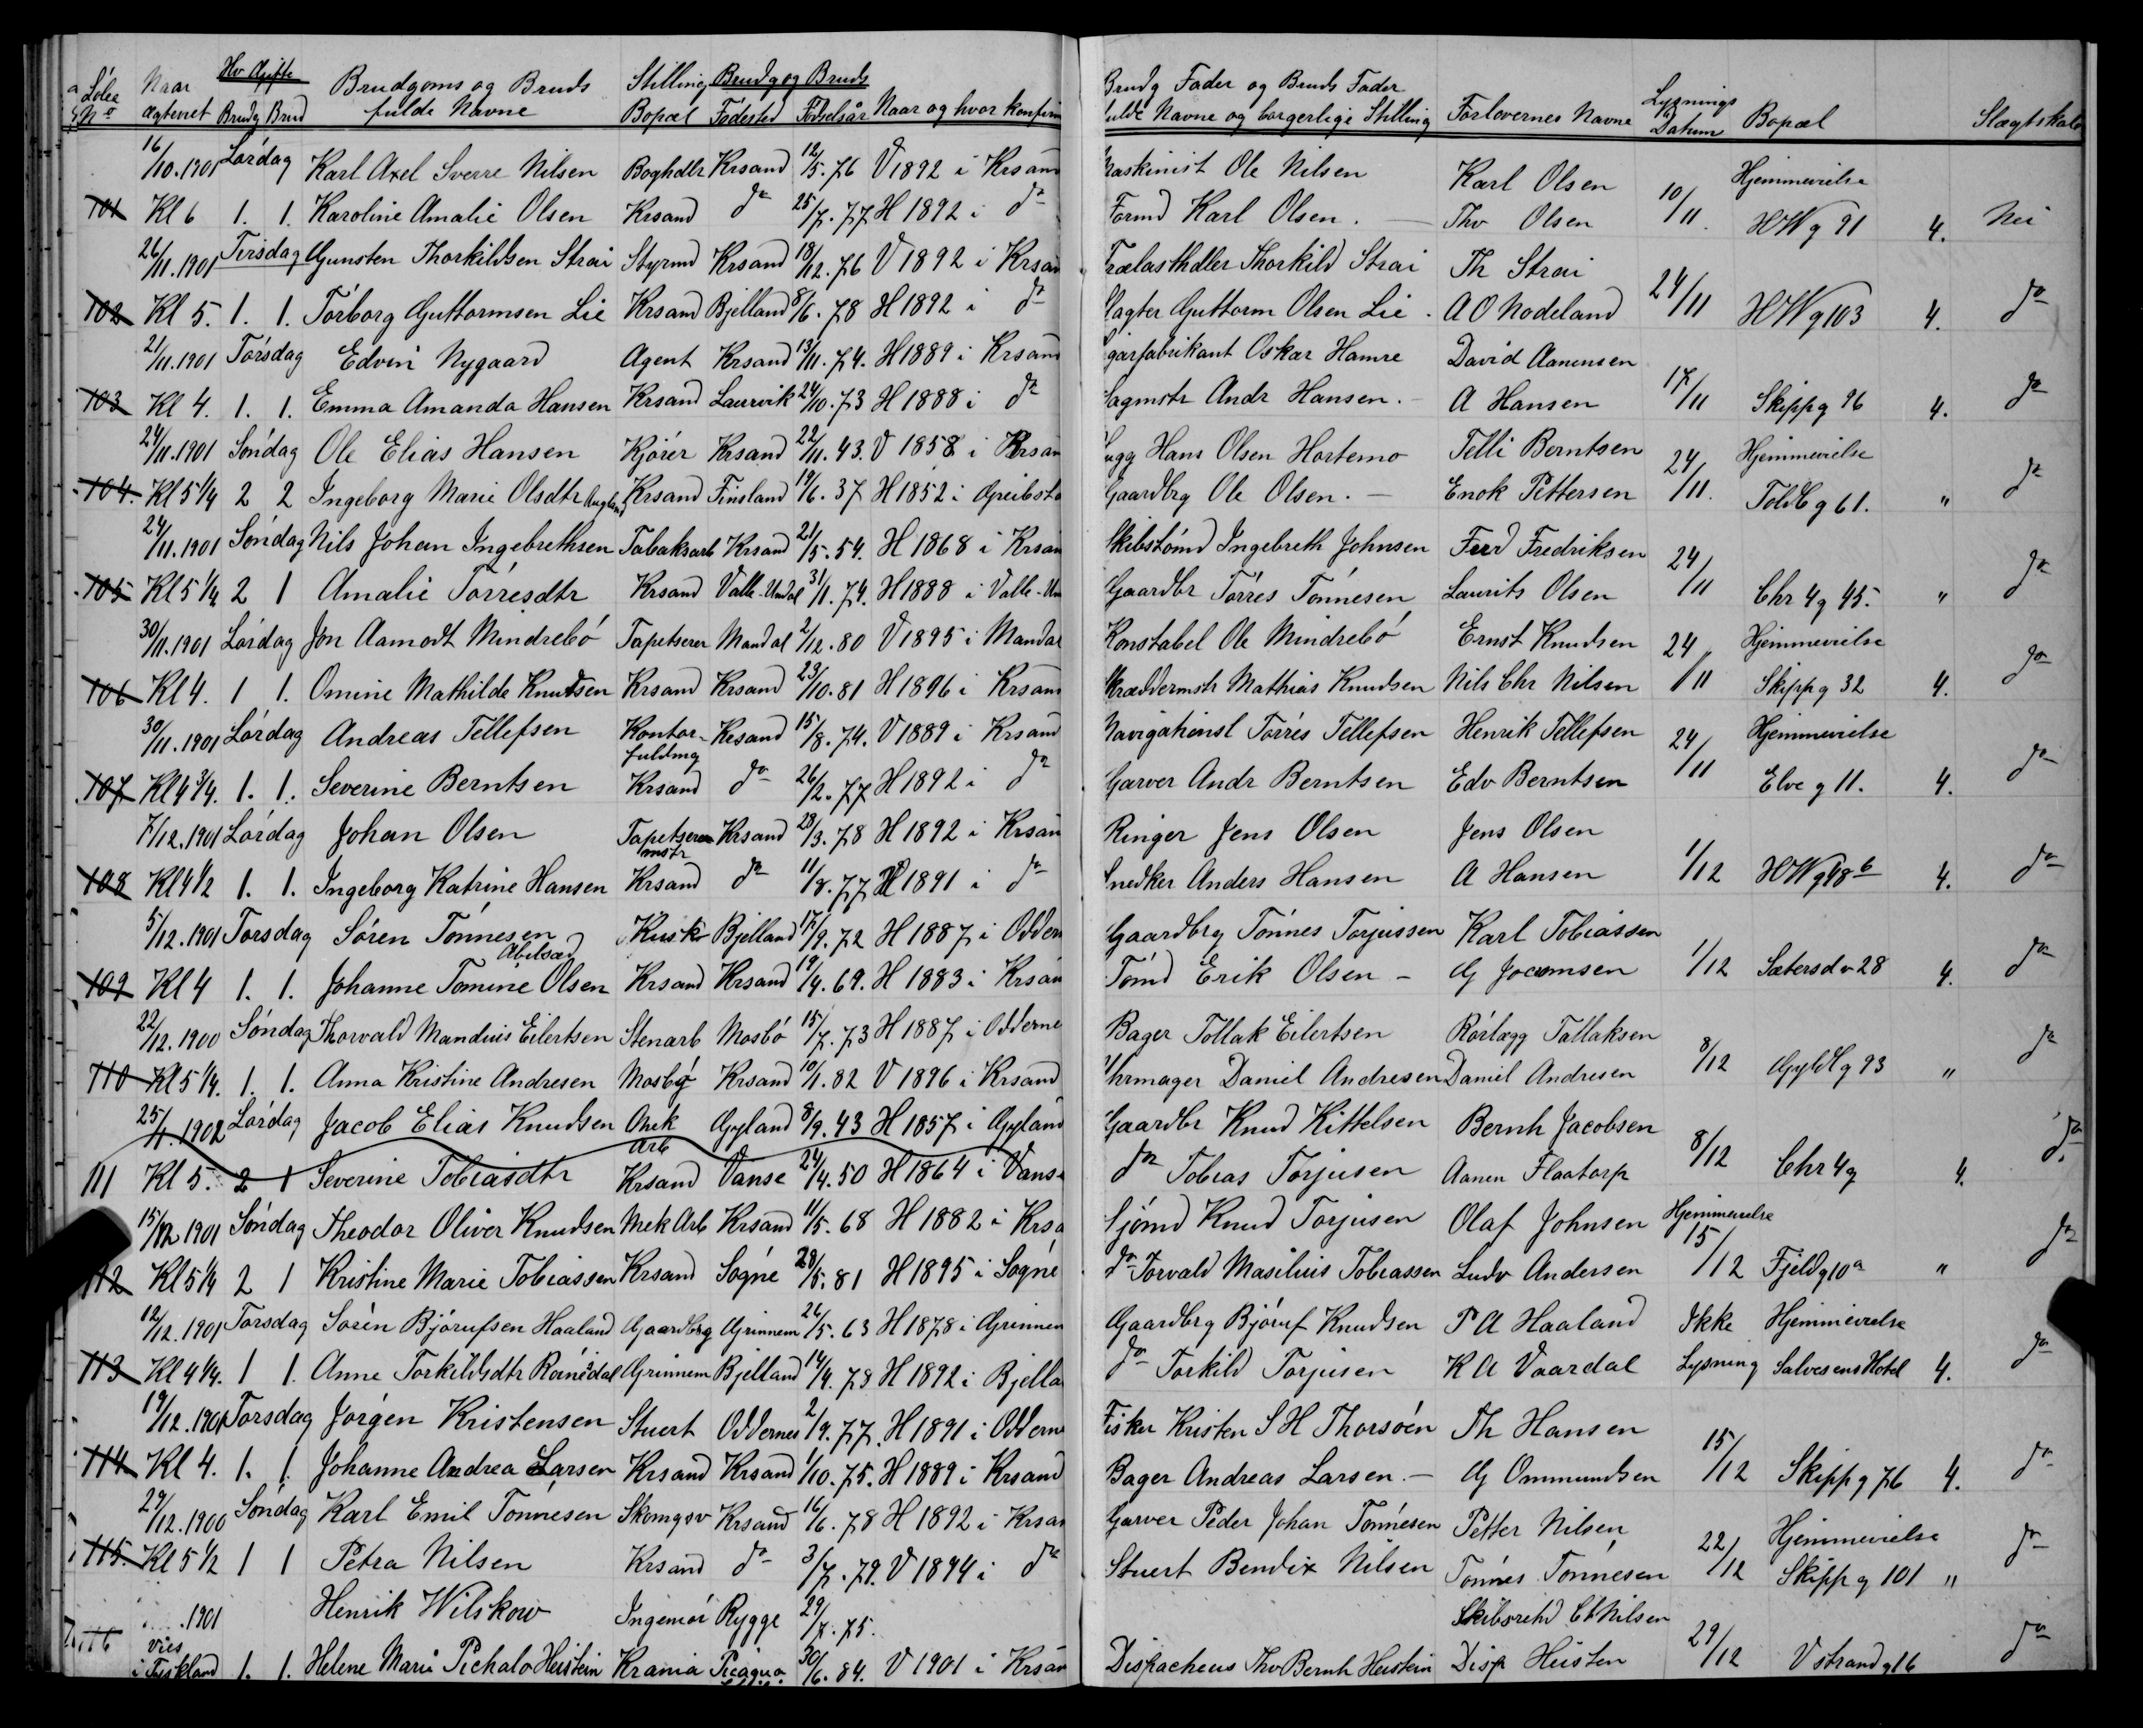 Løbe Naar Hv Gifte Brudgoms og Bruds Stilling Brudg og Bruds Brudg Fader og Bruds Fader Lysnings
No ægteviet Brudg Brud fulde Navne Bopæl Fødested Fødselsår Naar og hvor konfirm fulde Navne og borgerlige Stilling Forlovernes Navne Datum Bopæl Slægtskab
16/10.1901 Lørdag Karl Axel Sverre Nilsen Boghdlr Krsand 12/5.76 V 1892 i Krsand Maskinist Ole Nilsen Karl Olsen Hjemmevielse
101 Kl 6 1. 1. Karoline Amalie Olsen Krsand do 25/7.77 H 1892 i do Formd Karl Olsen. Thv Olsen 10/11. HWg 91 4. Nei
26/11.1901 Tirsdag Gunsten Thorkildsen Strai Styrmd Krsand 18/12.76 V 1892 i Krsan Trælasthdler Thorkild Strai Th Strai
102 Kl 5. 1. 1. Torborg Guttormsen Lie Krsand Bjelland 8/6.78 H 1892 i do Slagter Guttorm Olsen Lie. A O Nodeland 24/11 HWg 103 4. do
21/11.1901 Torsdag Edvin Nygaard Agent Krsand 13/11.74. H 1889 i Krsand igarfabrikant Oskar Hamre David Aanensen
103 Kl 4. 1. 1. Emma Amanda Hansen Krsand Laurvik 24/10.73 H 1888 i do Sagmstr Andr Hansen. A Hansen 17/11 Skippg 96 4. do
24/11.1901 Søndag Ole Elias Hansen Kjører Krsand 22/11.43. V 1858 i Krsan Hans Olsen Hortemo Telli Berntsen Hjemmevielse
104. Kl 5 1/4 2 2 Ingeborg Marie Olsdtr Augland Krsand Finsland 19/6.37 H 1852 i Greibsto Gaardbrg Ole Olsen. Enok Pettersen 24/11. Toldbg 61. " do
24/11.1901 Søndag Nils Johan Ingebrethsen Tabaksarb Krsand 21/5.54. H 1868 i Krsan Skibstømd Ingebreth Johnsen Ferd Fredriksen
105 Kl 5 1/4 2 1 Amalie Torresdtr Krsand Valle-Undal 31/1.74. H 1888 i Valle-Un Gaardbr Tørres Tønnesen Laurits Olsen 24/11 Chr 4g 45. " do
30/11.1901 Lørdag Jon Aamodt Mindrebø Tapetserer Mandal 2/12.80 V 1895 i Mandal Konstabel Ole Mindrebø Ernst Knudsen Hjemmevielse
106 Kl 4. 1 1. Omine Mathilde Knudsen Krsand Krsand 23/10.81 H 1896 i Krsand Skræddermstr Mathias Knudsen Nils Chr Nilsen 24/11 Skippg 32 4. do
30/11.1901 Lørdag Andreas Tellefsen Kontor-fuldmg Krsand 15/8.74. V 1889 i Krsand Navigationsl Tørres Tellefsen Henrik Tellefsen Hjemmevielse
107 Kl 4 3/4. 1. 1. Severine Berntsen Krsand do 26/2.77 H 1892 i do Garver Andr Berntsen Edv Berntsen 24/11 Elveg 11. 4. do
7/12.1901 Lørdag Johan Olsen Tapetserer mstr Krsand 28/3.78 H 1892 i Krsan Ringer Jens Olsen Jens Olsen
108 Kl 4 1/2 1. 1. Ingeborg Katrine Hansen Krsand do 11/8.77 H 1891 i do Snedker Anders Hansen A Hansen 1/12 HWg 98 b 4. do
5/12.1901 Torsdag Søren Tønnesen Abelsæd Kusk Bjelland 17/9.72 H 1887 i Oddern Gaardbrg Tønnes Torjussen Karl Tobiassen
109 Kl 4 1. 1. Johanne Tomine Olsen Krsand Krsand 19/4.69. H 1883 i Krsan Tømd Erik Olsen - G Jocumsen 1/12 Sætersdv 28 4. do
22/12.1900 Søndag Thorvald Mandius Eilertsen Stenarb Mosbø 15/7.73 H 1887 i Odderne Bager Tollak Eilertsen Rørlægg Tallaksen
110 Kl 5 1/4. 1. 1. Anna Kristine Andresen Mosby Krsand 10/1.82 V 1896 i Krsand Uhrmager Daniel Andresen Daniel Andresen 8/12 Gyldlg 93 " do
25/1.1902 Lørdag Jacob Elias Knudsen Mek Arb Gyland 8/9.43 H 1857 i Gyland Gaardbr Knud Kittelsen Bernh Jacobsen
111 Kl 5. 2 1 Severine Tobiasdtr Krsand Vanse 24/4.50 H 1864 i Vanse do Tobias Torjusen Aanen Flaatorp 8/12 Chr 4g 4. do
15/12 1901 Søndag Theodor Oliver Knudsen Mek Arb Krsand 11/5.68 H 1882 i Krsa Sjømd Knud Torjusen Olaf Johnsen Hjemmevielse
112 Kl 5 1/4 2 1 Kristine Marie Tobiassen Krsand Søgne 28/5.81 H 1895 i Søgne do Torvald Masilius Tobiassen Ludv Andersen 15/12 Fjeldg 10a " do
12/12.1901 Torsdag Søren Bjørufsen Haaland Gaardbrg Grinnem 26/5.63 H 1878 i Grinnem Gaardbrg Bjøruf Knudsen P A Haaland Ikke Hjemmevielse
113 Kl 4 1/4. 1 1. Anne Torkildsdtr Røinesdal Grinnem Bjelland 14/4.78 H 1892 i Bjella do Torkild Torjusen K A Vaardal Lysning Salvesens Hotel 4. do
19/12.1901 Torsdag Jørgen Kristensen Stuert Oddernes 2/9.77. H 1891 i Odderne Fisker Kristen S H Thorsøen Th Hansen
114. Kl 4. 1. 1. Johanne Andrea Larsen Krsand Krsand 1/10.75. H 1889 i Krsand Bager Andreas Larsen. - G Ommundsen 15/12 Skippg 76 4. do
29/12.1900 Søndag Karl Emil Tønnesen Skomgsv Krsand 16/6.78 H 1892 i Krsan Garver Peder Johan Tønnesen Petter Nilsen Hjemmevielse
115. Kl 5 1/2 1 1 Petra Nilsen Krsand do 3/7.79. V 1894 i do Stuert Bendix Nilsen Tønnes Tønnesen 22/12 Skippg 101 " do
1901 Henrik Wilskow Ingeniør Rygge 29/7.75. Skibsrehd Nilsen
116 vies i Tyskland 1. 1. Helene Marie Pichalo Heistein Krania 30/6.84. V 1901 i Krsan Dispacheus Thv Bernh Heistein Disp Heisten 29/12 V strandg 16 do